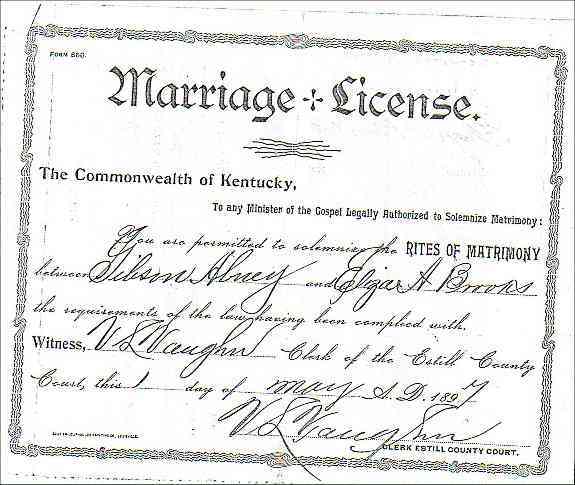 FORM 660.
Marriage License.
The Commonwealth of Kentucky,
To any Minister of the Gospel Legally Authorized to Solemnize Matrimony:
You are permitted to solemnize the RITES OF MATRIMONY
between Gibson Abney and Eliza A Brooks
the requirements of the law having been complied with.
Witness, V L Vaughn Clerk of the Estill County
Court, this 1 day of may A. D. 1897
V L Vaughn
CLERK ESTILL COUNTY COURT.